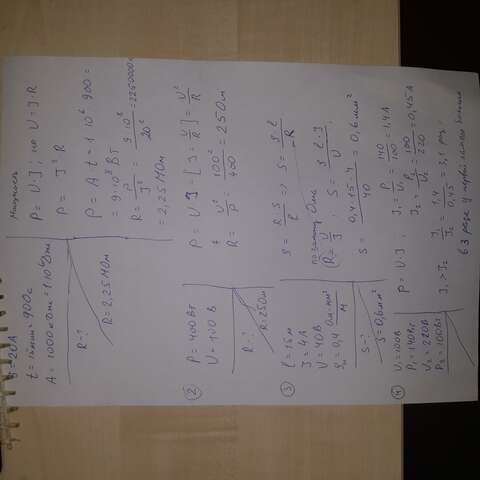 J=20A
t=15мин=900с
A=1000кДж=1·10⁶Дж
R-?
R=2,25МОм
Мощность
P=U·J; но U=J·R
P=J²R
P=A·t=1·10⁶·900=
=9·10⁸Вт
R=P/J²=9·10⁸/20²=2250000=
=2,25МОм
②
P=400Вт
U=100В
R-?
R=25Ом
P=UJ=[J=U/R]=U²/R
R=U²/P=100²/400=25Ом
③
ℓ=15м
J=4А
U=40В
ρ=0,4 Ом·мм²/м
S-?
S=0,6мм²
R=U/J; S=ρ·ℓ·J/U;
S=0,4·15·4/40=0,6мм²
④
U₁=100В
P₁=140Вт
U₂=220В
P₂=100Вт
P=U·J; J₁=P₁/U₁=140/100=1,4А
J₂=P₂/U₂=100/220=0,45А
J₁>J₂ J₁/J₂=1,4/0,45=3,1 раз,
в 3 раза у первой лампы больше